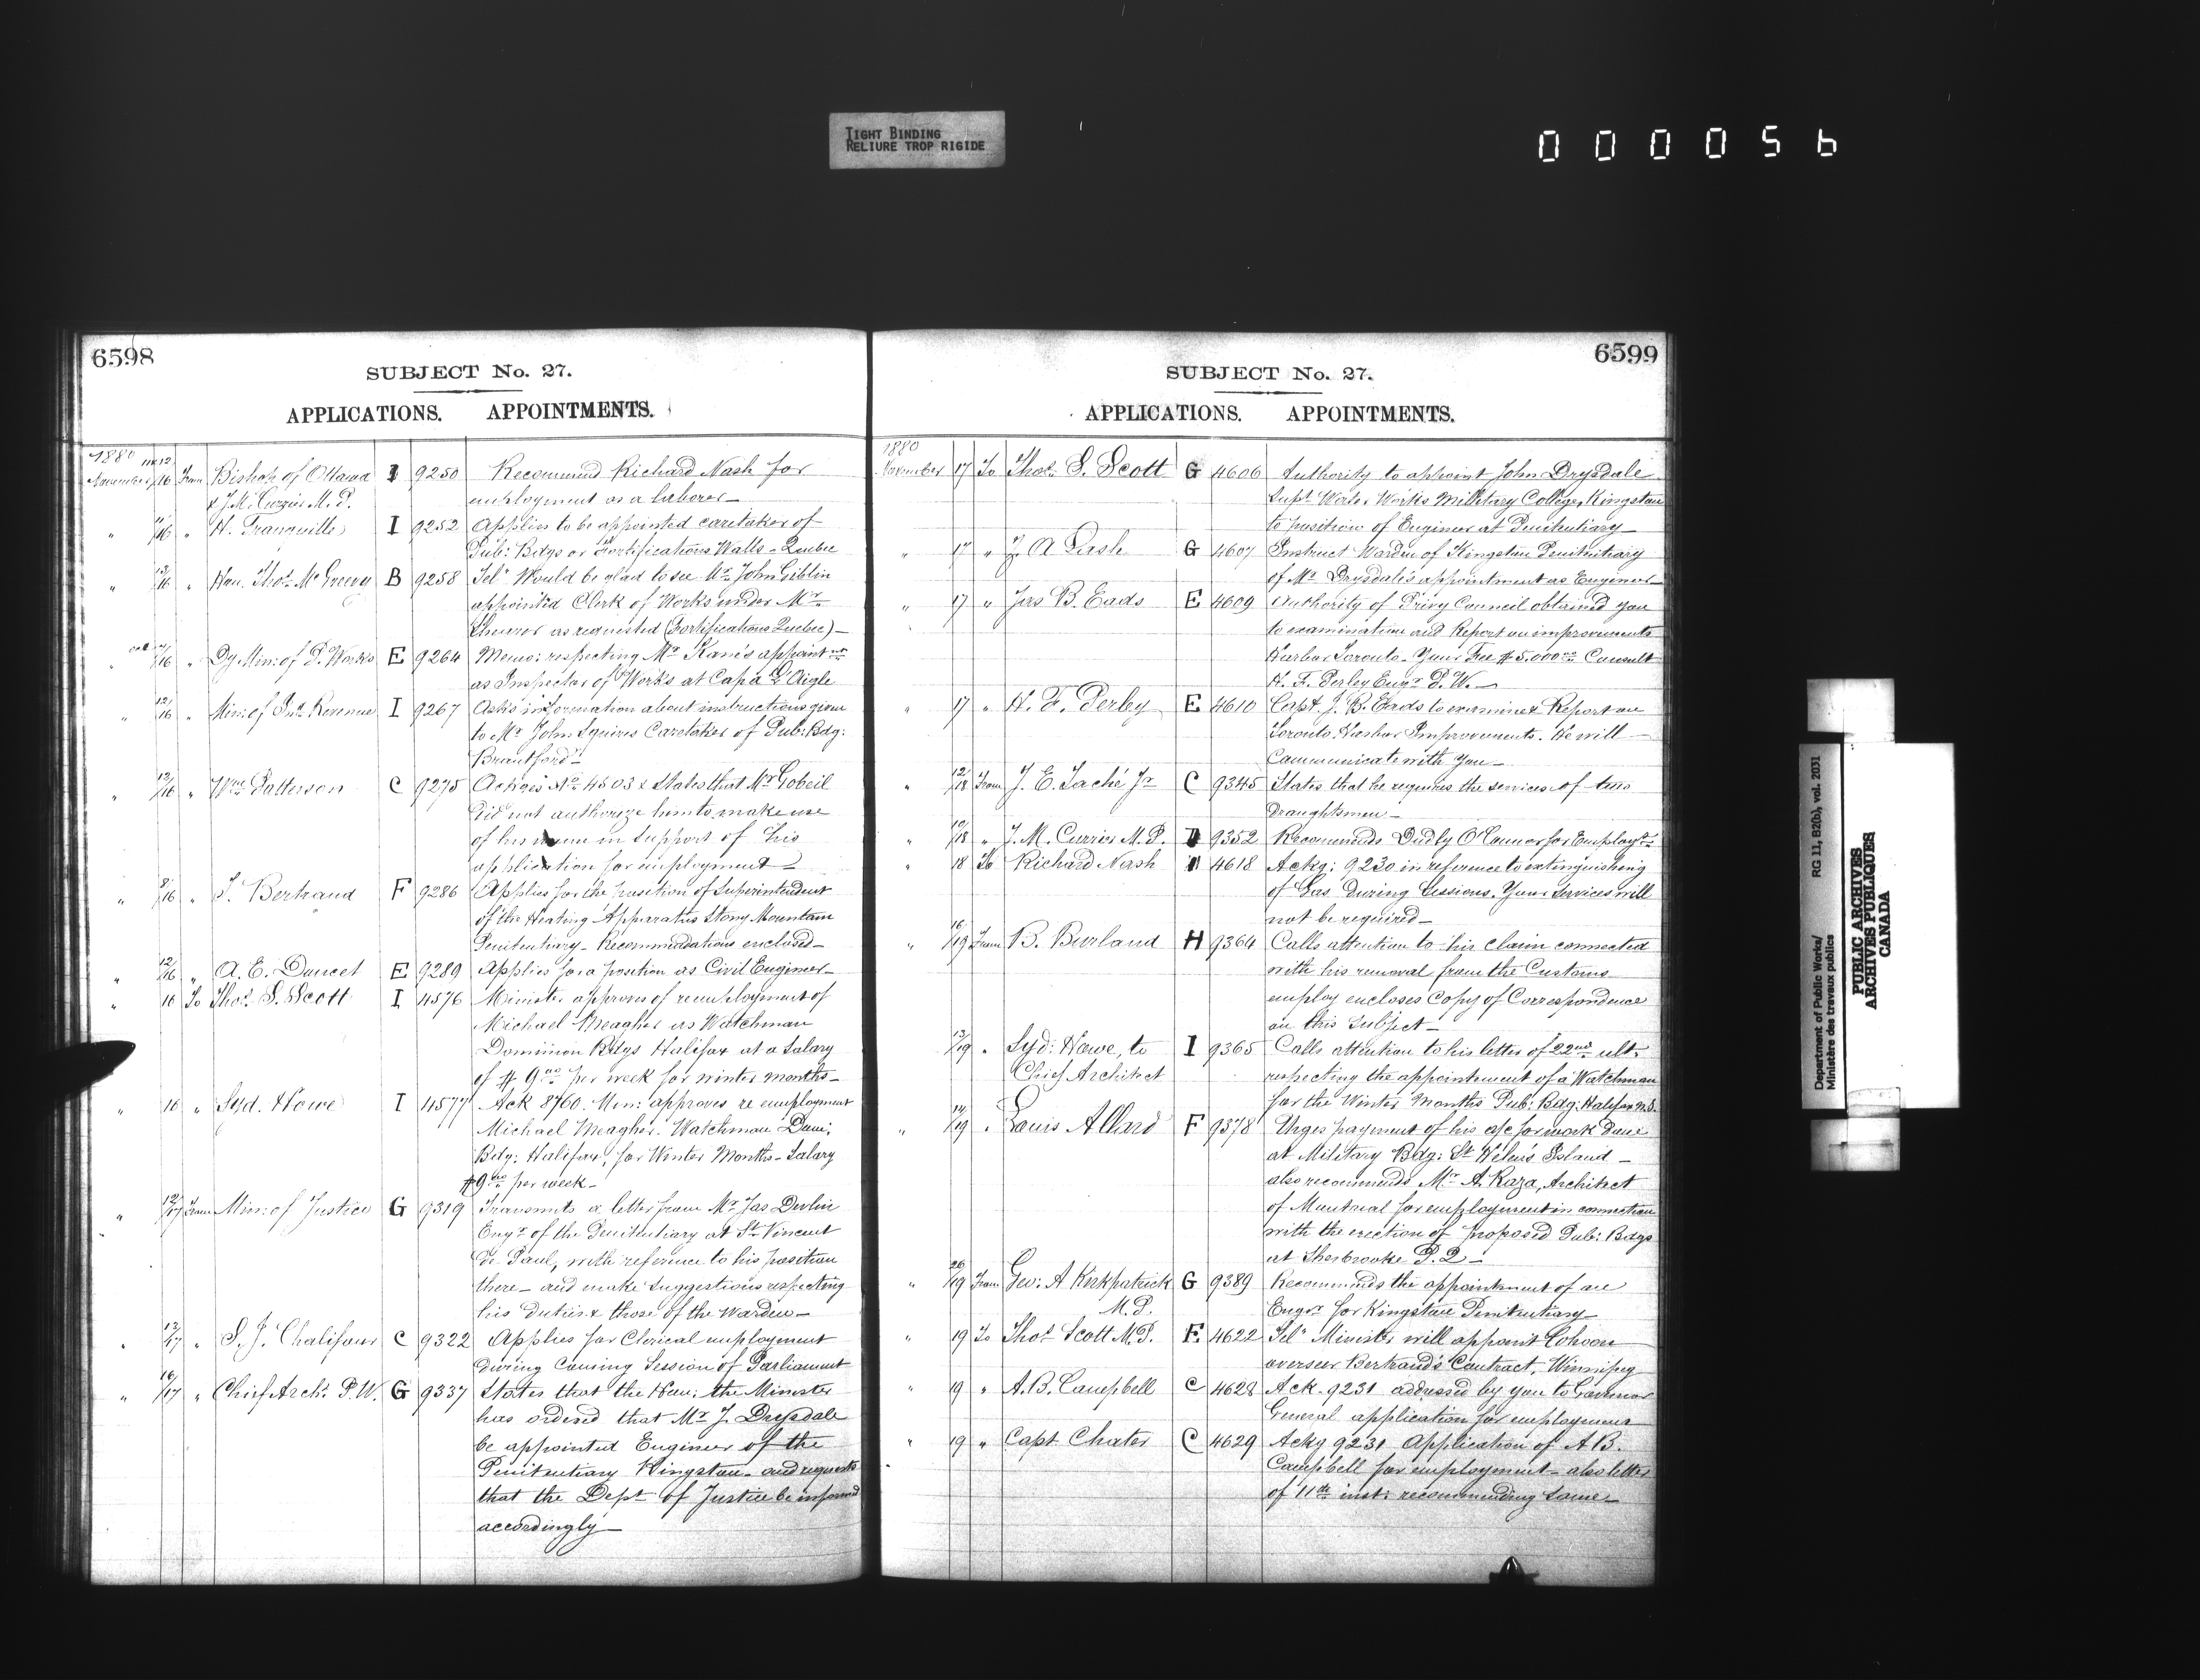 TIGHT BINDING
RELIURE TROP RIGIDE
0 0 0 0 5 6
6598
SUBJECT No. 27.
APPLICATIONS. APPOINTMENTS.
1880
November 16 From Bishop of Ottawa I 9250 Recommend Richard Nash for
& J.M. Currier M.P. employment as a laborer—
" 16 " H. Tranquille I 9252 Applies to be appointed caretaker of
Pub: Bdgs or Fortifications Walls - Quebec
" 12/16 " Hon. Thos. McGreevy B 9258 Tel: Would be glad to see Mr John Giblin
appointed Clerk of Works under Mr
as requested (Fortifications Quebec)—
" 16 " Dy Min: of P. Works E 9264 Memo: respecting Mr Kane's appointmt
as Inspector of Works at Cap à L'Aigle
" 12/16 " Min: of Ind. Revenue I 9267 Asks information about instructions given
to Mr John Squires Caretaker of Pub: Bdg:
Brantford—
" 12/16 " Wm Patterson C 9275 Ackges No 4503 & States that Mr Gobeil
did not authorize him to make use
of his name in support of his
application for employment—
" 8/16 " T. Bertrand F 9286 Applies for the position of Superintendent
of the Heating Apparatus Stony Mountain
Penitentiary - Recommendations enclosed—
" 12/16 " A. E. Doucet E 9289 Applies for a position as Civil Engineer—
" 16 To Thos. S. Scott I 4576 Minister approves of reemployment of
Michael Meagher as Watchman
Dominion Bdgs Halifax at a Salary
of $9.00 per week for winter months—
" 16 " Syd. Howe I 4577 Ack 8760. Min: approves re employment
Michael Meagher. Watchman Dom:
Bdg: Halifax, for Winter Months - Salary
$9.00 per week—
" 12/17 From Min: of Justice G 9319 Transmits a letter from Mr Jas Devlin
Engr of the Penitentiary at St Vincent
de Paul, with reference to his position
there— and make suggestions respecting
his duties & those of the Warden—
" 13/17 " S. J. Chalifour C 9322 Applies for Clerical employment
during Coming Session of Parliament
" 16/17 " Chief Arch: P.W. G 9337 States that the Hon: the Minister
has ordered that Mr J. Drysdale
be appointed Engineer of the
Penitentiary Kingston - and requests
that the Dept of Justice be informed
accordingly—
6599
SUBJECT No. 27.
APPLICATIONS. APPOINTMENTS.
1880
November 17 To Thos. S. Scott G 4606 Authority to appoint John Drysdale
Supt Works Military College, Kingston
to position of Engineer at Penitentiary—
" 17 " Z A Lash G 4607 Instruct Warden of Kingston Penitentiary
of Mr Drysdale's appointment as Engineer—
" 17 " Jas B. Eads E 4609 Authority of Privy Council obtained you
to examination and Report on improvements
Harbor Toronto - Your Fee $5,000.00 Consult
H. F. Perley Engr P.W.—
" 17 " H. F. Perley E 4610 Capt. J. B. Eads to examine & Report on
Toronto Harbor Improvements. He will—
Communicate with you—
" 12/18 From J. E. Taché Jr C 9345 States that he requires the services of two
Draughtsmen—
" 18 " J. M. Currier M.P. 9352 Recommends Dudly O'Connor for Employmt
" 18 To Richard Nash 4618 Ackg: 9230 in reference to extinguishing
of Gas During Sessions. Your services will
not be required—
" 16/19 From B. Burland H 9364 Calls attention to his claim connected
with his removal from the Customs
employ encloses Copy of Correspondence
on this subject—
13/19 " Syd: Howe, to I 9365 Calls attention to his letter of 22nd ult:
Chief Architect respecting the appointment of a Watchman
for the Winter Months Pub: Bdg: Halifax N.S.
" 14/19 " Louis Allard F 9378 Urges payment of his a/c for work done
at Military Bdg: St Helen's Island—
also recommends Mr A. Raza, Architect
of Montreal for employment in connection
with the erection of proposed Pub: Bdgs
at Sherbrooke P.Q—
" 19 From Geo: A Kirkpatrick G 9389 Recommends the appointment of an
M.P. Engr for Kingston Penitentiary—
" 19 To Thos Scott M.P. F 4622 Tel: Minister will appoint Cohoon
overseer Bertrand's Contract, Winnipeg
" 19 " A. B. Campbell C 4628 Ack. 9231 addressed by you to Governor
General application for employment
" 19 " Capt Chater C 4629 Ackg 9231 Application of A B.
Campbell for employment - also letter
of 11th inst: recommending same—
Department of Public Works/ RG 11, B2(b), vol. 2031
Ministère des travaux publics
PUBLIC ARCHIVES
ARCHIVES PUBLIQUES
CANADA